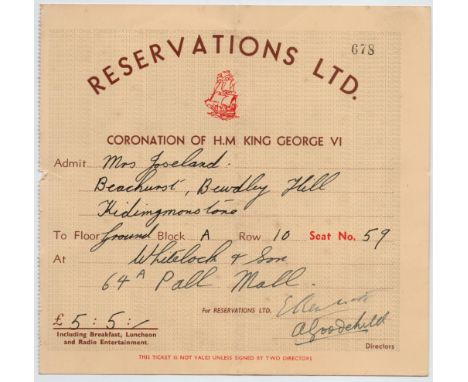 678
RESERVATIONS LTD.
CORONATION OF H.M KING GEORGE VI
Admit Mrs Joseland.
Beachurst, Bewdley Hill
Kidingmonstone
To Floor Ground Block A Row 10 Seat No. 59
At Whitelock & Son
64A Pall Mall.
For RESERVATIONS LTD.
AGoodchild
Directors
£5:5:/
Including Breakfast, Luncheon
and Radio Entertainment.
THIS TICKET IS NOT VALID UNLESS SIGNED BY TWO DIRECTORS